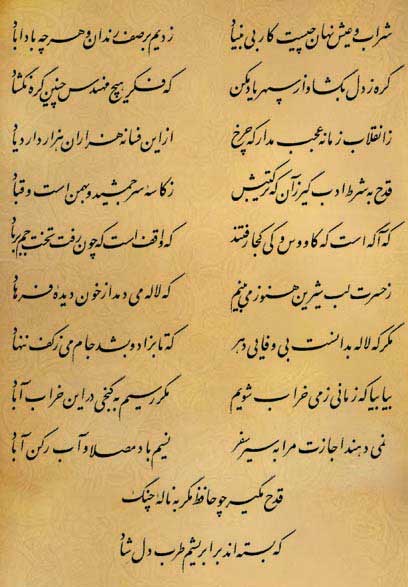 شراب و عیش نهان چیست کار بی بنیاد زدیم بر صف رندان و هر چه بادا باد
گره ز دل بگشا و از سپهر یاد مکن که فکر هیچ مهندس چنین گره نگشاد
ز انقلاب زمانه عجب مدار که چرخ ازین فسانه هزاران هزار دارد یاد
قدح به شرط ادب گیر زان که ترکیبش ز کاسه سر جمشید و بهمن است و قباد
که آگه است که کاووس و کی کجا رفتند که واقف است که چون رفت تخت جم بر باد
ز حسرت لب شیرین هنوز می بینم که لاله می دمد از خون دیده فرهاد
مگر که لاله بدانست بی وفایی دهر که تا بزاد و بشد جام می ز کف ننهاد
بیا بیا که زمانی ز می خراب شویم مگر رسیم به گنجی در این خراب آباد
نمی دهند اجازت مرا به سیر سفر نسیم باد مصلا و آب رکن آباد
قدح مگیر چو حافظ مگر به ناله چنگ
که بسته اند بر ابریشم طرب دل شاد